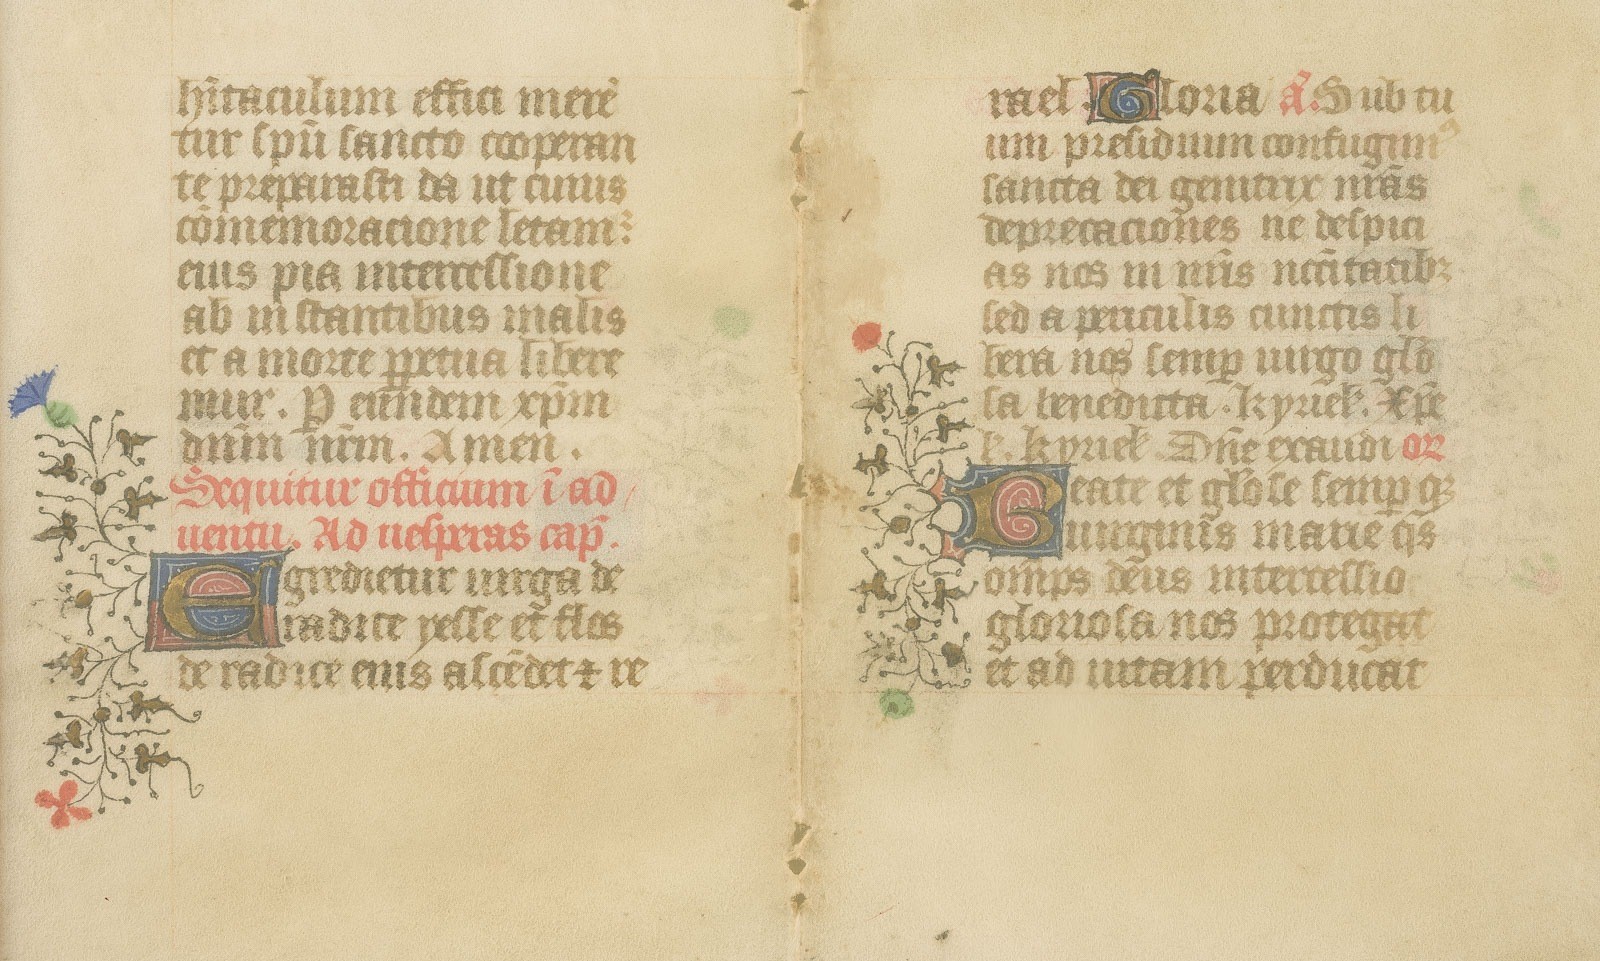 hitaculum effici mere̅
tur spu̅ sancto cooperan
te preparasti da ut cuius
co̅memoracione letam᷑
eius pia intercessione
ab instantibus malis
et a morte ꝑpetua libere
mur. P eu̅ndem xp̅m
dn̅m nr̅m. Amen.
Sequitur officium i̅ ad
uentu. Ad uesperas cap̅.
Egredietur uirga de
radice yesse et̅ flos
de radice eius asce̅det ⁊ re
rael. Gloria a̅. Sub tu
um presidium confugimꝰ
sancta dei genitrix nr̅as
deprecacio̅nes ne despici
as nos in nr̅is ncc̅itatibꝫ
sed a periculis cunctis li
bera nos semꝑ uirgo glo̅
sa benedicta. kyriel̅. Xp̅e
k̅. kyriel̅. Dn̅e exaudi or
Beate et glo̅se semꝑ qꝫ
uirginis̅ marie qs̅
omp̅s de̅us intercessio
gloriosa nos protegat
et ad uitam perducat